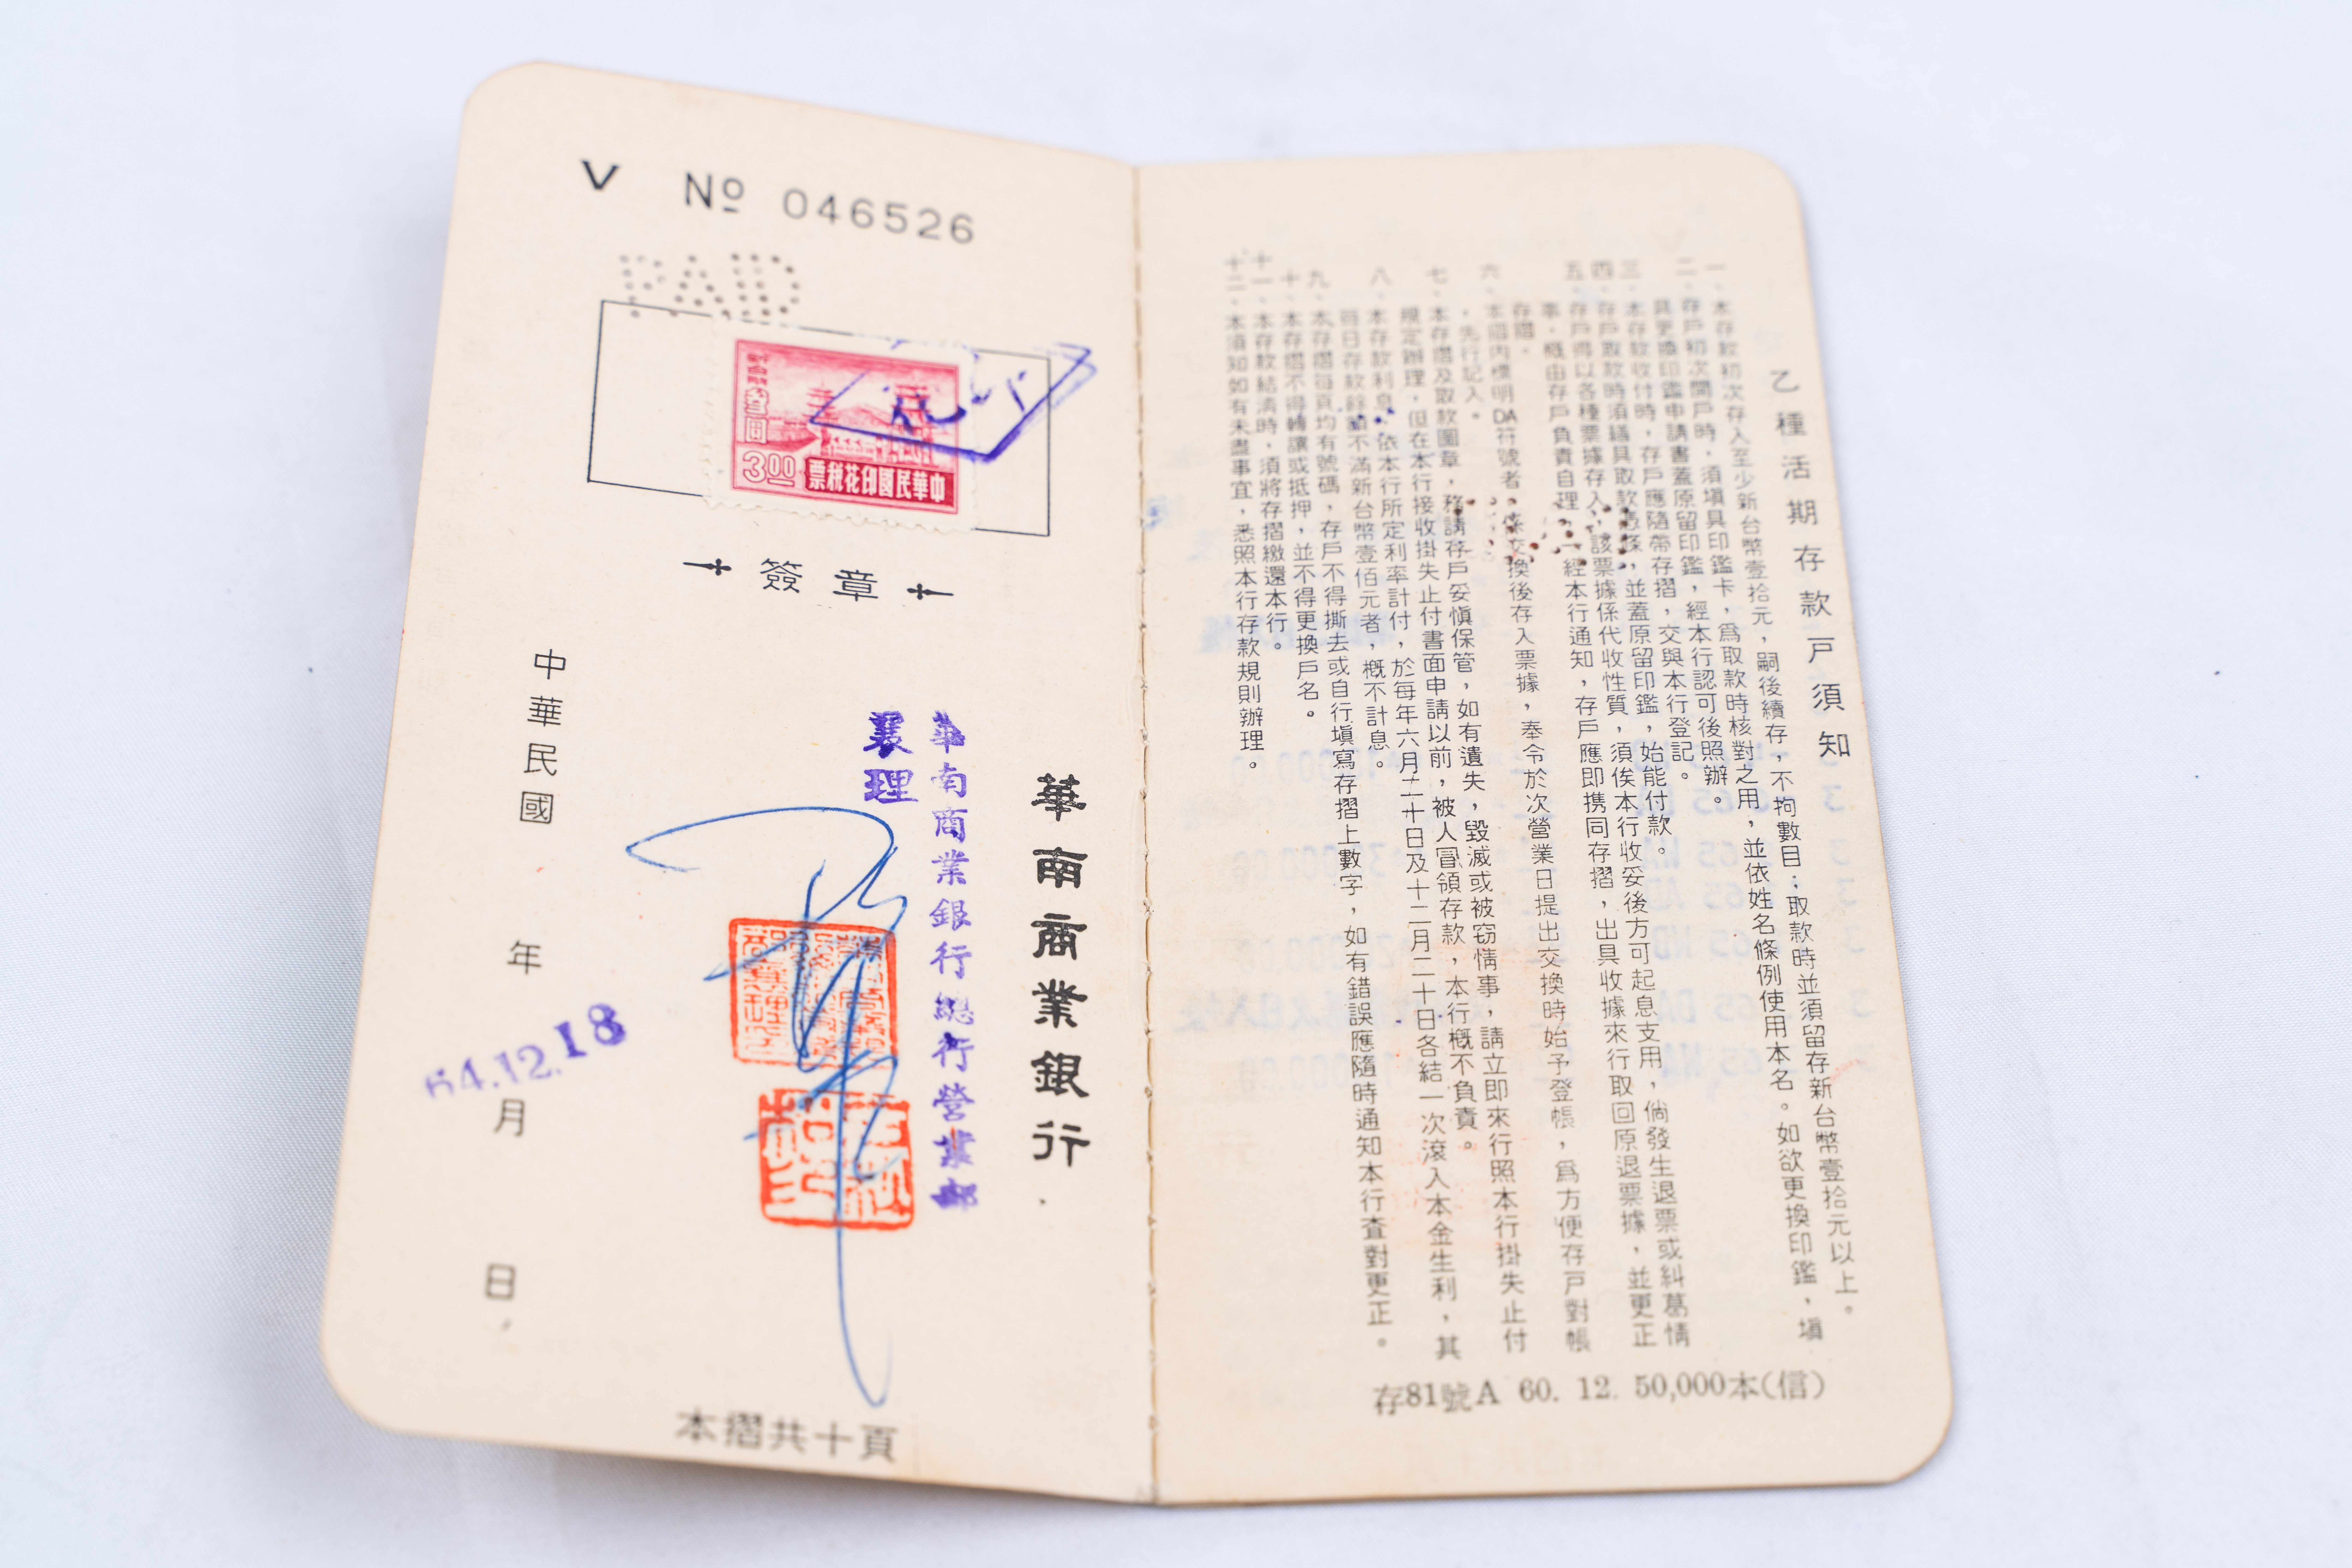 V № 046526
PAID
新台幣叁圓
3.00
中華民國印花稅票
簽章
華南商業銀行
華南商業銀行總行營業部
襄理
中華民國 年 月 日
64.12.18
本摺共十頁
乙種活期存款戶須知
一、本存款初次存入至少新台幣壹拾元，嗣後續存，不拘數目；取款時並須留存新台幣壹拾元以上。
二、存戶初次開戶時，須塡具印鑑卡，爲取款時核對之用，並依姓名條例使用本名。如欲更換印鑑，塡
具更換印鑑申請書蓋原留印鑑，經本行認可後照辦。
三、本存款收付時，存戶應隨帶存摺，交與本行登記。
四、存戶取款時須繕具取款憑條，並蓋原留印鑑，始能付款。
五、存戶得以各種票據存入，該票據係代收性質，須俟本行收妥後方可起息支用，倘發生退票或糾葛情
事，概由存戶負責自理，一經本行通知，存戶應即携同存摺，出具收據來行取回原退票據，並更正
存摺。
六、本摺內標明DA符號者，係交換後存入票據，奉令於次營業日提出交換時始予登帳，爲方便存戶對帳
，先行記入。
七、本存摺及取款圖章，務請存戶妥愼保管，如有遺失，毀滅或被窃情事，請立即來行照本行掛失止付
規定辦理，但在本行接收掛失止付書面申請以前，被人冒領存款，本行概不負責。
八、本存款利息，依本行所定利率計付，於每年六月二十日及十二月二十日各結一次滾入本金生利，其
每日存款餘額不滿新台幣壹佰元者，概不計息。
九、本存摺每頁均有號碼，存戶不得撕去或自行塡寫存摺上數字，如有錯誤應隨時通知本行查對更正。
十、本存摺不得轉讓或抵押，並不得更換戶名。
十一、本存款結淸時，須將存摺繳還本行。
十二、本須知如有未盡事宜，悉照本行存款規則辦理。
存81號A 60. 12. 50,000本(信)